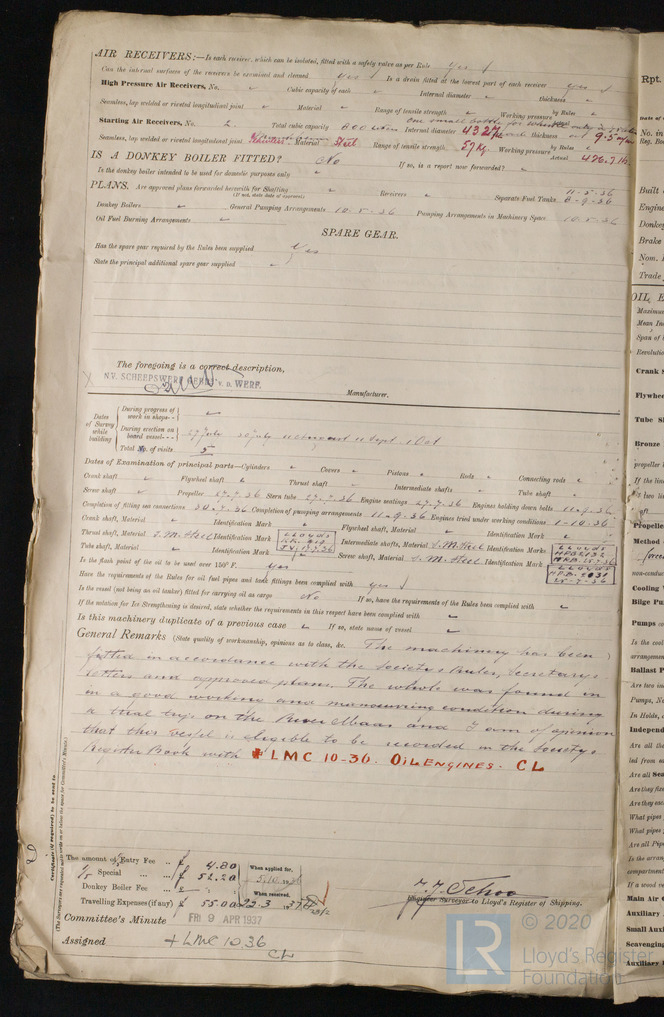 AIR RECEIVERS:—Is each receiver, which can be isolated, fitted with a safety valve as per Rule yes
Can the internal surfaces of the receivers be examined and cleaned yes Is a drain fitted at the lowest part of each receiver yes
High Pressure Air Receivers, No. Cubic capacity of each Internal diameter thickness
Seamless, lap welded or riveted longitudinal joint Material Range of tensile strength Working pressure by Rules
one small bottle for whistle
Starting Air Receivers, No. 2. Total cubic capacity 800 Internal diameter thickness 9.5
Seamless, lap welded or riveted longitudinal joint Material Steel Range of tensile strength Working pressure by Rules Actual
IS A DONKEY BOILER FITTED? No If so, is a report now forwarded?
Is the donkey boiler intended to be used for domestic purposes only
PLANS. Are approved plans forwarded herewith for Shafting Receivers Separate Fuel Tanks 11-5-36 8-9-36
(If not, state date of approval)
Donkey Boilers General Pumping Arrangements 10-5-36 Pumping Arrangements in Machinery Space 10-5-36
Oil Fuel Burning Arrangements
SPARE GEAR.
Has the spare gear required by the Rules been supplied Yes
State the principal additional spare gear supplied
The foregoing is a correct description,
N.V. SCHEEPSWERF v. D. WERF.
Manufacturer.
Dates of Survey while building
During progress of work in shops--
During erection on board vessel---
Total No. of visits 5
Dates of Examination of principal parts—Cylinders Covers Pistons Rods Connecting rods
Crank shaft Flywheel shaft Thrust shaft Intermediate shafts Tube shaft
Screw shaft Propeller 27-7-36 Stern tube 27-7-36 Engine seatings 27-7-36 Engines holding down bolts 11-9-36
Completion of fitting sea connections 30-7-36 Completion of pumping arrangements 11-9-36 Engines tried under working conditions 1-10-36
Crank shaft, Material Identification Mark Flywheel shaft, Material Identification Mark
Thrust shaft, Material S.M. Steel Identification Mark LLOYDS Intermediate shafts, Material S.M. Steel Identification Marks LLOYDS
Tube shaft, Material Identification Mark Screw shaft, Material S.M. Steel Identification Mark LLOYDS
Is the flash point of the oil to be used over 150° F. yes
Have the requirements of the Rules for oil fuel pipes and tank fittings been complied with yes
Is the vessel (not being an oil tanker) fitted for carrying oil as cargo No If so, have the requirements of the Rules been complied with
If the notation for Ice Strengthening is desired, state whether the requirements in this respect have been complied with
Is this machinery duplicate of a previous case If so, state name of vessel
General Remarks (State quality of workmanship, opinions as to class, &c. The machinery has been
fitted in accordance with the Society's Rules, Secretary's
letters and approved plans. The whole was found in
in a good working and manœuvring condition during
a trial trip on the River Maas and I am of opinion
that this vessel is eligible to be recorded in the Society's
Register Book with ✠ LMC 10-36. OIL ENGINES. CL
Certificate (if required) to be sent to
(The Surveyors are requested not to write on or below the space for Committee's Minute.)
The amount of Entry Fee .. £ 4.80
4/5 Special ... ... £ 52.20
Donkey Boiler Fee ... £
Travelling Expenses (if any) £ 55.00
When applied for,
5.10.1936
When received,
22.3.1937
Engineer Surveyor to Lloyd's Register of Shipping.
Committee's Minute FRI 9 APR 1937
Assigned + LMC 10.36
CL
© 2020
LR Lloyd's Register
Foundation
Rpt.
No. in
Reg. Boo
Built
Engine
Donkey
Brake
Nom.
Trade
OIL E
Maximum
Mean In
Span of
Revolutio
Crank S
Flywhee
Tube S
Bronze
propeller
If the line
Propelle
Method
non-condu
Cooling
Bilge Pu
Pumps
Is the cool
Ballast P
Are two in
Pumps, No
In Holds,
Independ
Are all the
led from
Are all Sea
Are they fix
Are they eac
What pipes
What pipes
Are all Pip
Is the arran
compartment
If a wood
Main Air C
Auxiliary
Small Auxi
Scavenging
Auxiliary